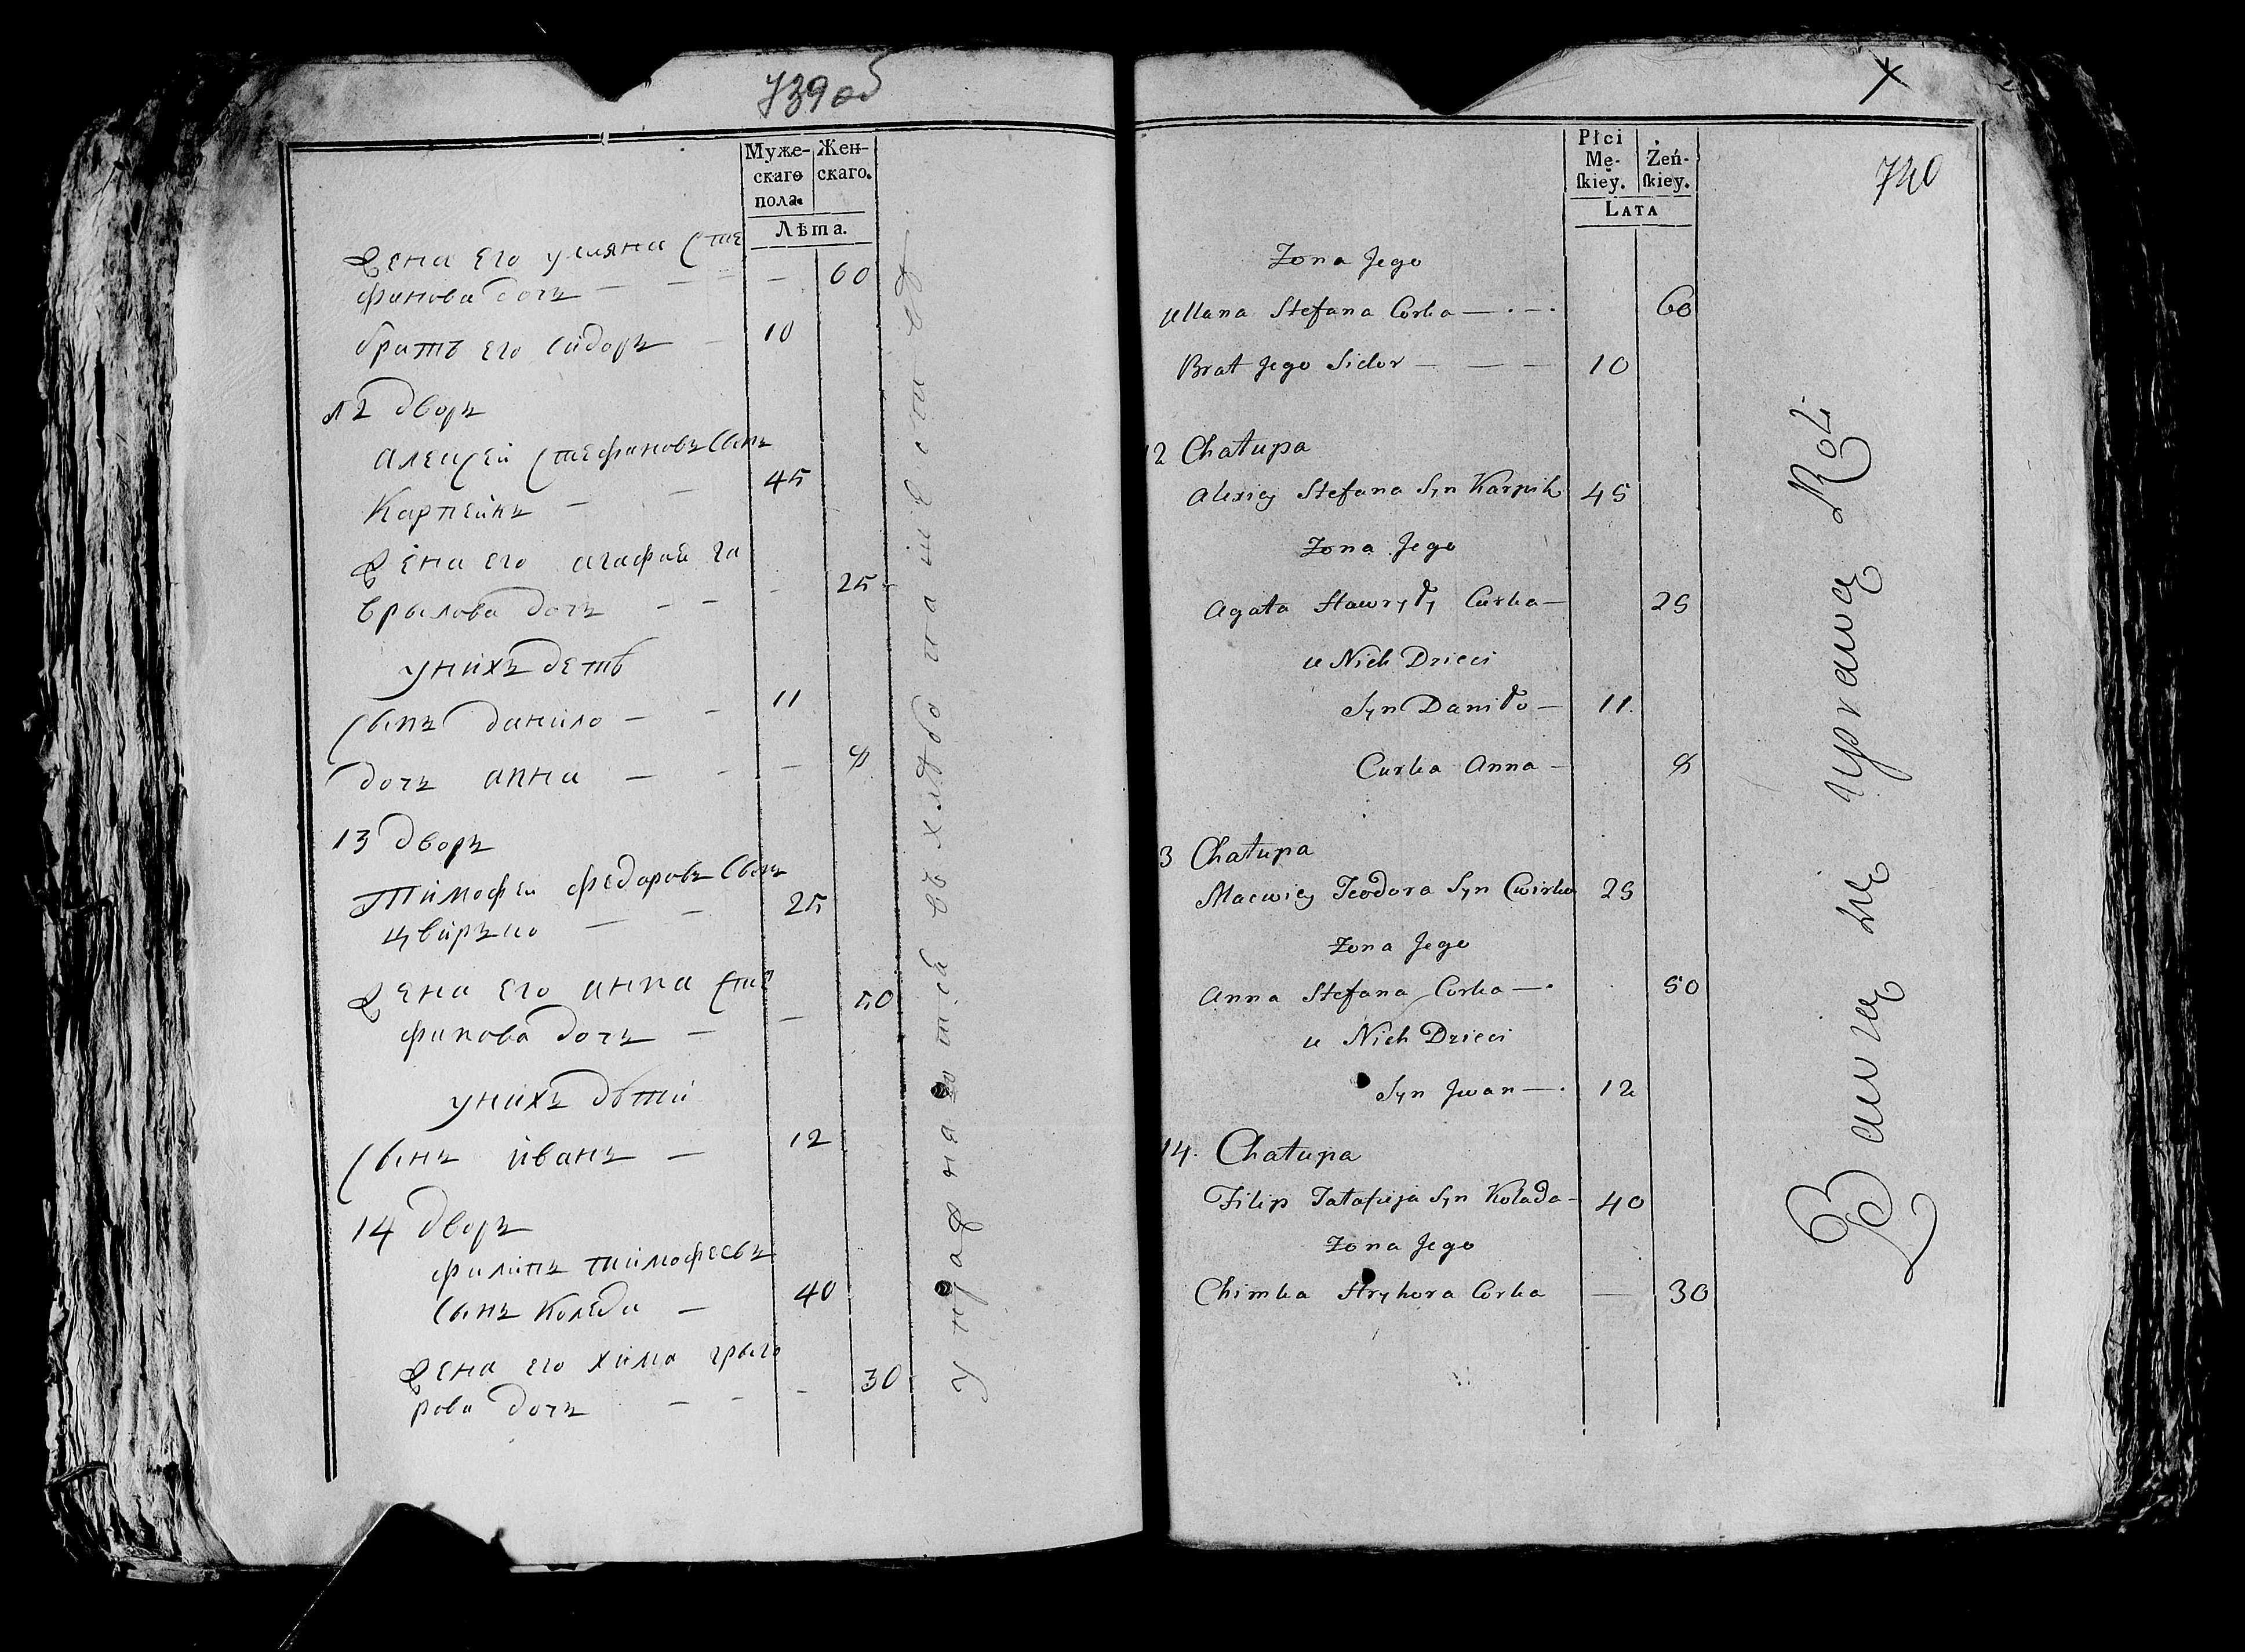 739 об
Муже-
скаго
пола.
Жен-
скаго.
Лѣта.
Жена его уляна Сте
фанова дочъ — — — — 60
братъ его сидоръ — 10
12 дворъ
Алексей Стефановъ Сынъ
Карпикъ — — 45
Жена его агафия га
врылова дочъ — — — 25
у нихъ дети
Сынъ данило — — 11
дочъ анна — — — 8
13 дворъ
Тимофеи федоровъ Сынъ
цвирко — — 25
Жена его анна Сте
фанова дочъ — — 50
у нихъ дѣти
Сынъ иванъ — 12
14 дворъ
филипъ тимофеевъ
Сынъ Коледа — 40
Жена его хима грыго
рова дочъ — — — 30
X
740
Płci
Mę-
ſkiey.
Żeń-
ſkiey.
LATA
Zona Jego
Ullana Stefana Corka — . — . 60
Brat Jego Sidor — — — 10
12 Chałupa
Alexiey Stefana Syn Karpik 45
Zona Jego
Agata Hawryły Curka — 25
u Nich Dzieci
Syn Daniło — 11
Curka Anna — 8
3 Chałupa
Maciey Teodora Syn Cwirko 25
Zona Jego
Anna Stefana Corka — . 50
u Nich Dzieci
Syn Jwan — . 12
14. Chałupa
Filip Syn Kolada — 40
Zona Jego
Chimka Hryhora Corka — 30
Bawią się uprawą Roli